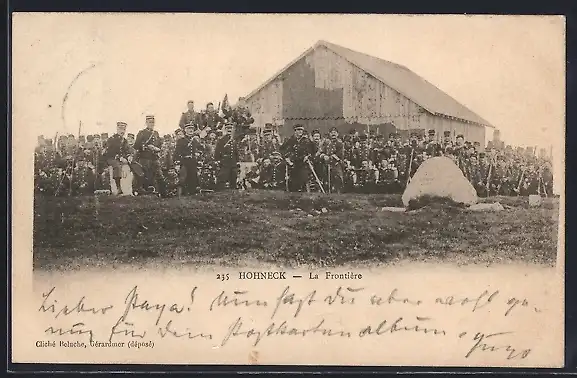 235 HOHNECK — La Frontière
Lieber Papa! Nun hast Du aber wohl ge-
nug für dein Postkarten album
Cliché Beluche, Gérardmer (déposé)